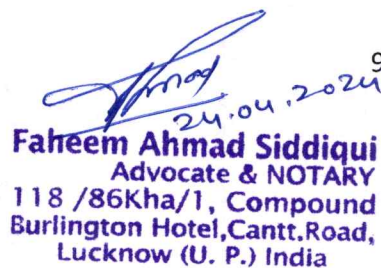 9
24.04.2024
Faheem Ahmad Siddiqui
Advocate & NOTARY
118 /86Kha/1, Compound
Burlington Hotel,Cantt.Road,
Lucknow (U. P.) India